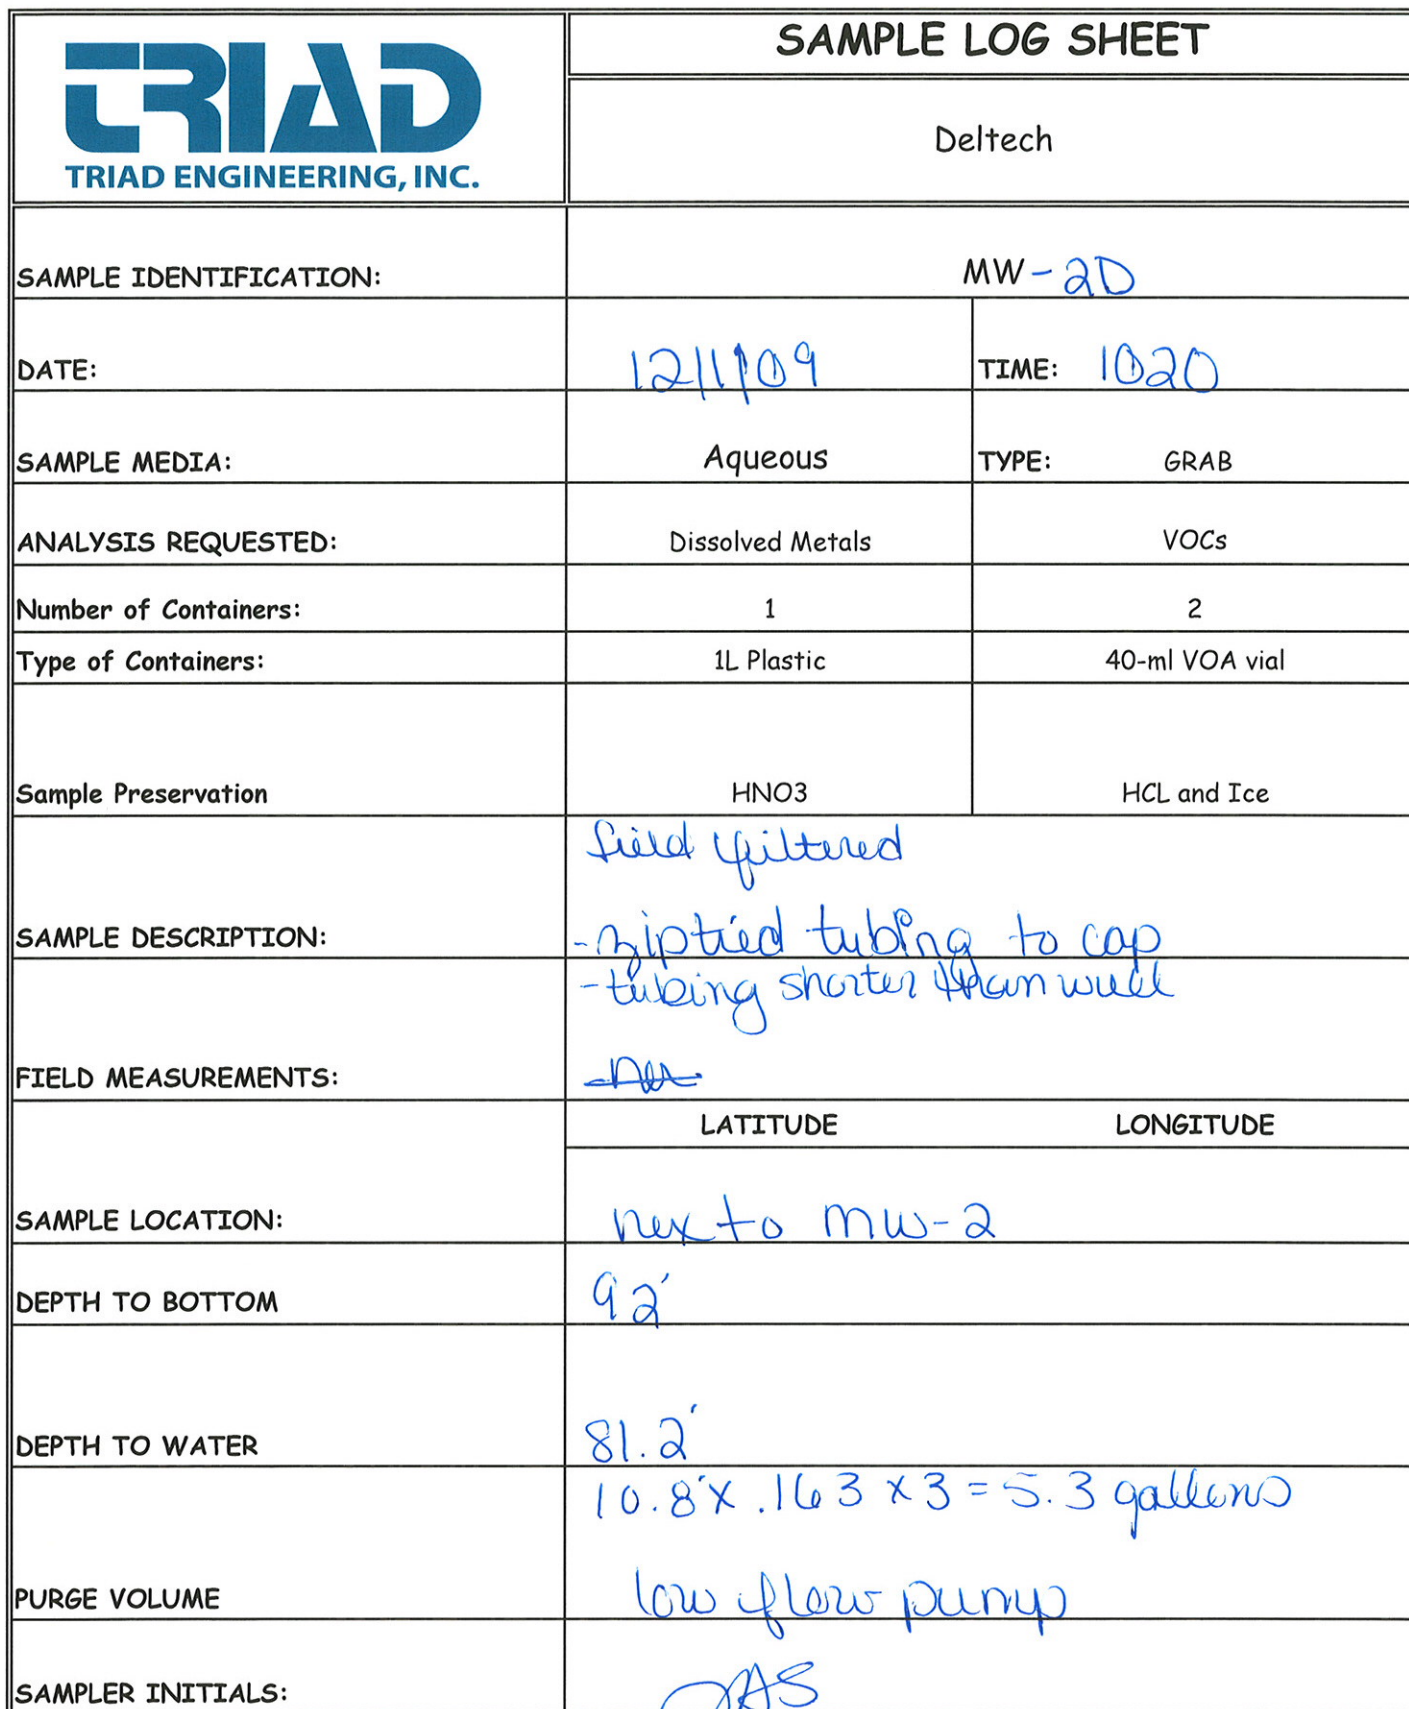 TRIAD
TRIAD ENGINEERING, INC.
SAMPLE LOG SHEET
Deltech
SAMPLE IDENTIFICATION: MW-2D
DATE: 12/1/09 TIME: 1020
SAMPLE MEDIA: Aqueous TYPE: GRAB
ANALYSIS REQUESTED: Dissolved Metals VOCs
Number of Containers: 1 2
Type of Containers: 1L Plastic 40-ml VOA vial
Sample Preservation HNO3 HCL and Ice
field filtered
SAMPLE DESCRIPTION: -ziptied tubing to cap
-tubing shorter than well
FIELD MEASUREMENTS:
LATITUDE LONGITUDE
SAMPLE LOCATION: nex to MW-2
DEPTH TO BOTTOM 92'
DEPTH TO WATER 81.2'
10.8' x .163 x 3 = 5.3 gallons
PURGE VOLUME low flow pump
SAMPLER INITIALS: